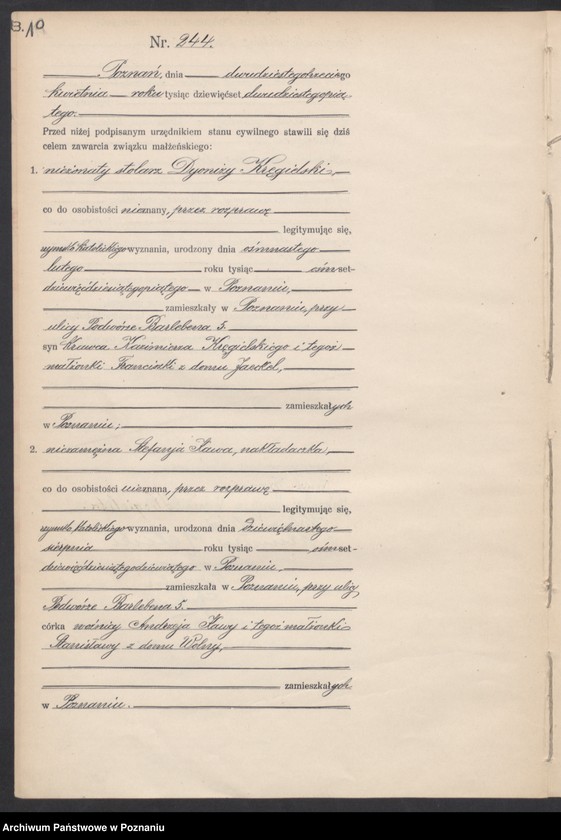 B. 10
Nr. 244.
Poznań, dnia dwudziestegotrzeciego
kwietnia roku tysiąc dziewięćset dwudziestegopią-
tego.
Przed niżej podpisanym urzędnikiem stanu cywilnego stawili się dziś
celem zawarcia związku małżeńskiego:
1. nieżonaty stolarz Dyonizy Kręgielski,
co do osobistości nieznany, przez rozprawę
legitymując się,
rzymsko katolickiego wyznania, urodzony dnia ośmnastego
lutego roku tysiąc ośmset-
dziewięćdziesiątegopiątego w Poznaniu,
zamieszkały w Poznaniu, przy
ulicy Podwórze Barlebena 5.
syn krawca Kazimierza Kręgielskiego i tegoż
małżonki Franciszki z domu Jaeckel,
zamieszkałych
w Poznaniu;
2. niezamężna Stefanja Sława, nakładaczka,
co do osobistości nieznana, przez rozprawę
legitymując się,
rzymsko katolickiego wyznania, urodzona dnia dziewiętnastego
sierpnia roku tysiąc ośmset-
dziewięćdziesiątegodziewiątego w Poznaniu,
zamieszkała w Poznaniu, przy ulicy
Podwórze Barlebena 5.
córka woźnicy Andrzeja Sławy i tegoż małżonki
Stanisławy z domu Wolny,
zamieszkałych
w Poznaniu.
Archiwum Państwowe w Poznaniu